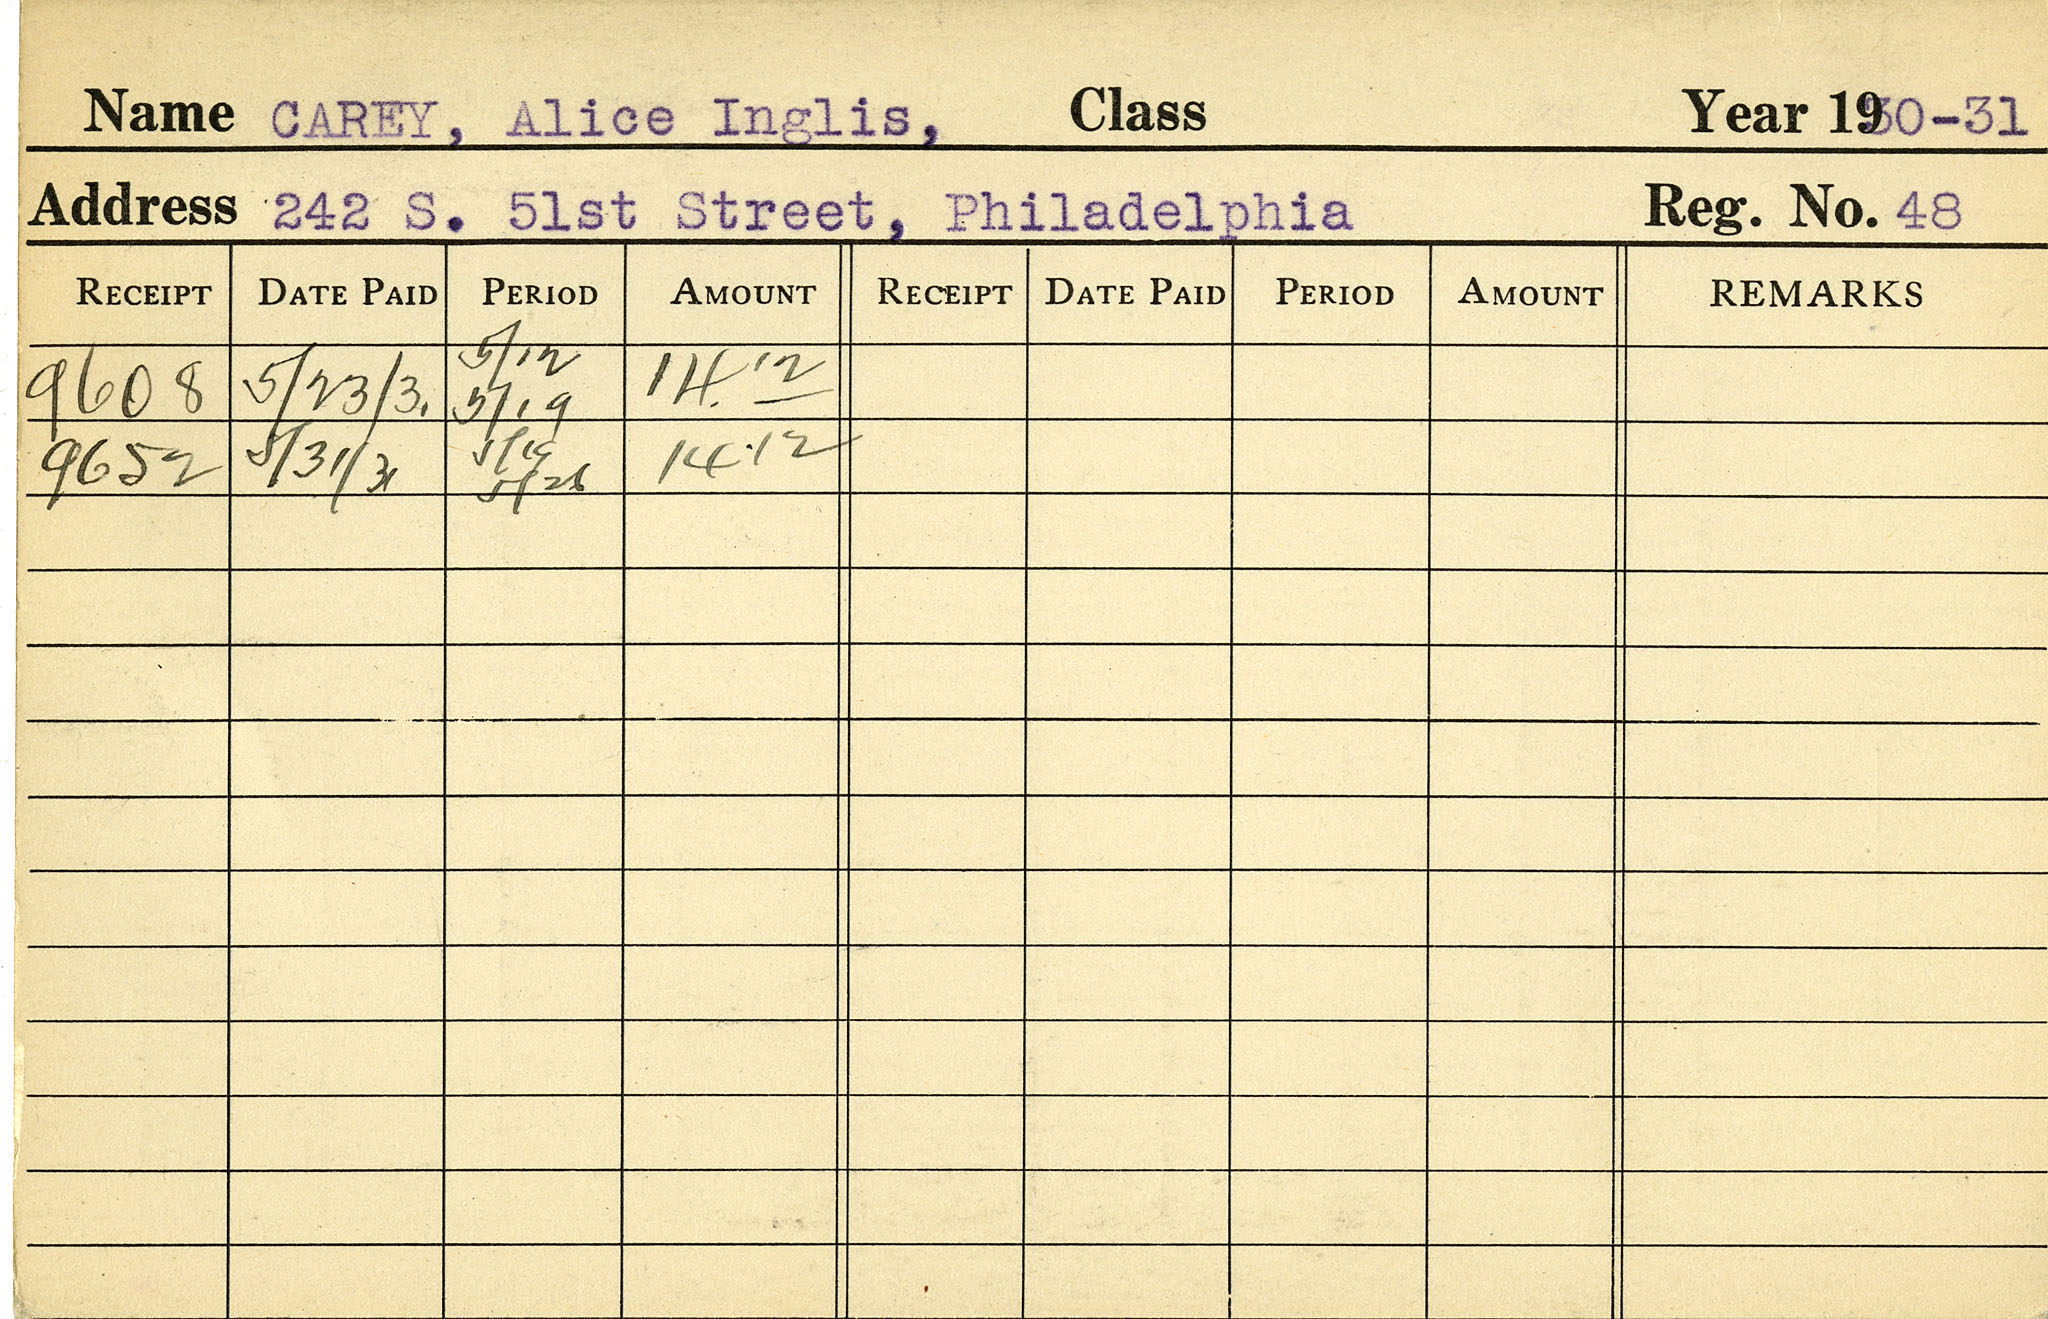 Name CAREY, Alice Inglis, Class Year 1930-31
Address 242 S. 51st Street, Philadelphia Reg. No. 48
RECEIPT DATE PAID PERIOD AMOUNT RECEIPT DATE PAID PERIOD AMOUNT REMARKS
5/12
9608 5/23/31 5/19 14.12
9652 5/31/31 14.12
5/26